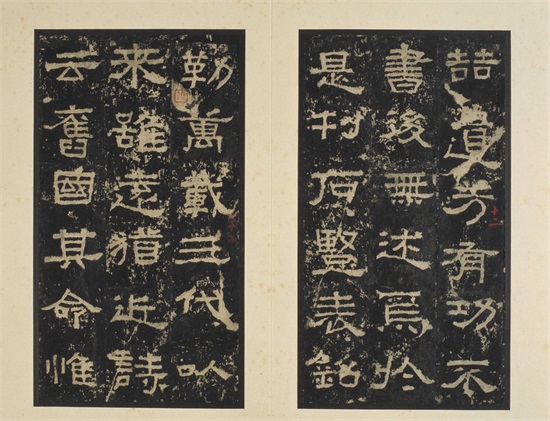 喆遺芳有功不
書後無述焉於
是刊石竪表銘
勒萬載三代以
來雖遠猶近詩
云舊國其命惟